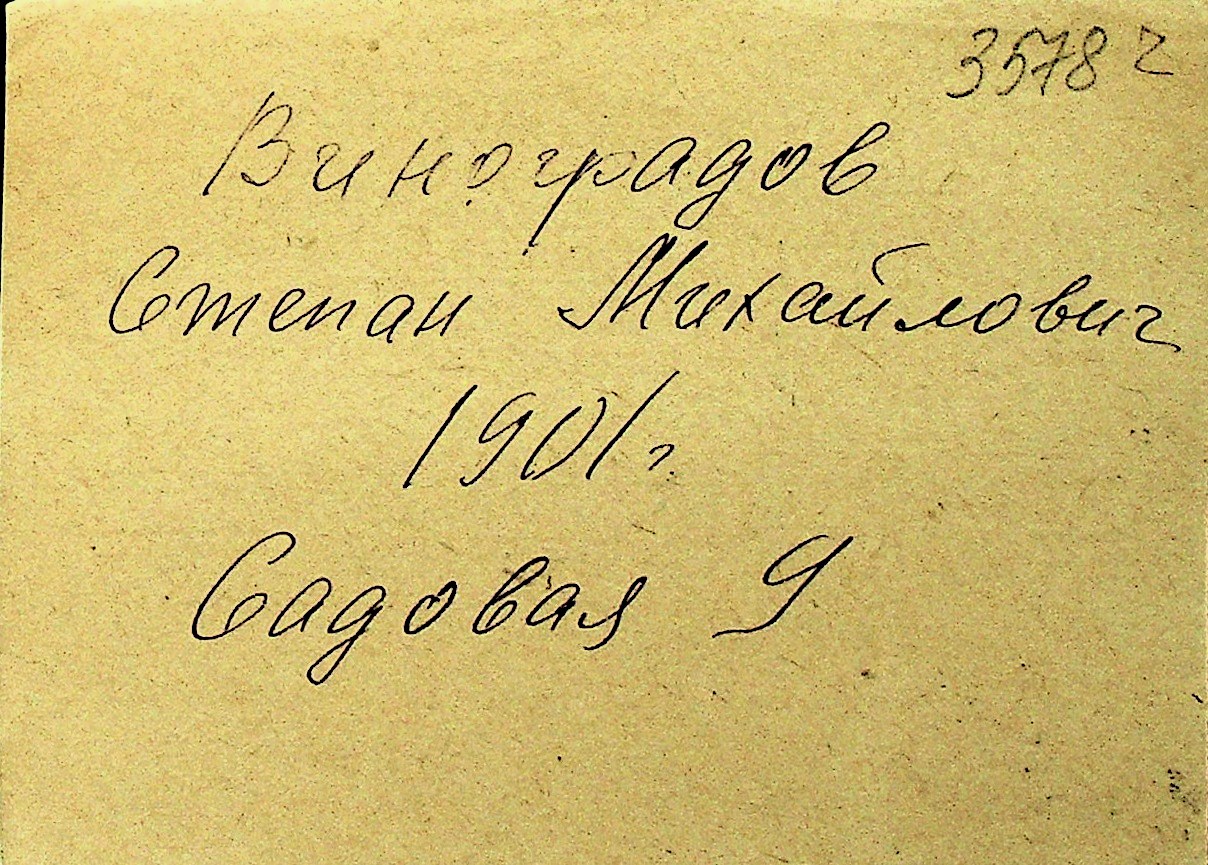 3578 ч
Виноградов
Степан Михайлович
1901 г
Садовая 9